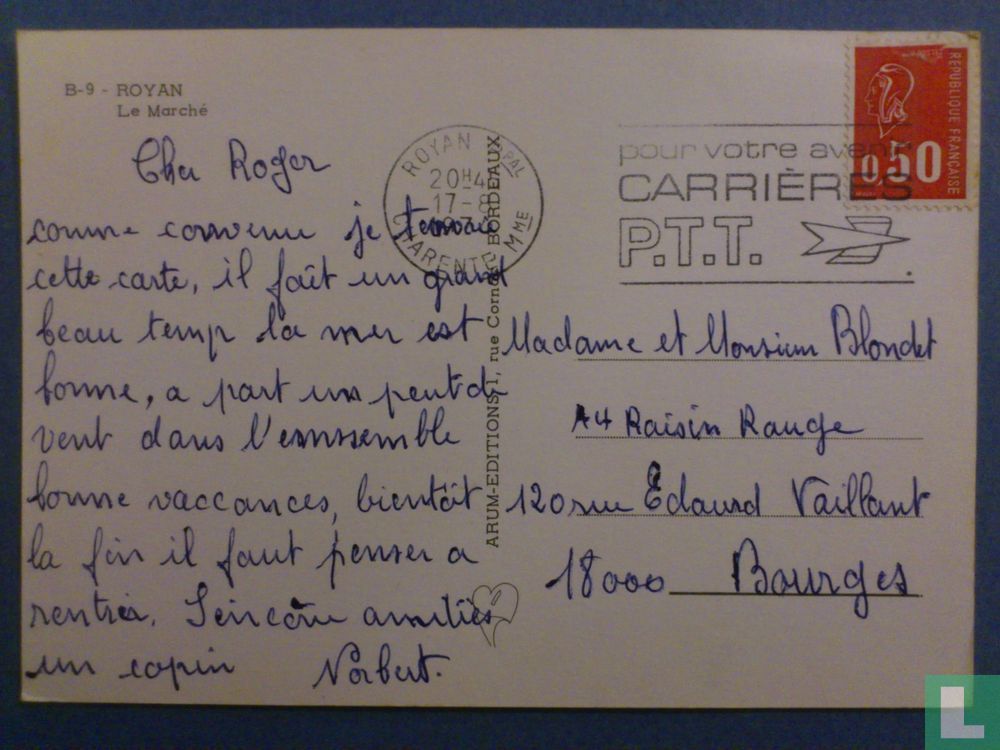 B-9 - ROYAN
Le Marché
Cher Roger
comme convenu je tenvoie
cette carte, il fait un grand
beau temp la mer est
bonne, a part un peut de
vent dans l'enssemble
bonne vaccances, bientôt
la fin il faut penser a
rentrée. Seincère amitiés
un copin Norbert.
ARUM-EDITIONS, 1, rue BORDEAUX
ROYAN PPAL
20H4
17-8
CHARENTE MME
pour votre avenir
CARRIÈRES
P.T.T.
REPUBLIQUE FRANÇAISE
0,50
Madame et Monsieur Blondet
A4 Raisin Rauge
120 rue Édaurd Vaillant
18000 Bourges
L